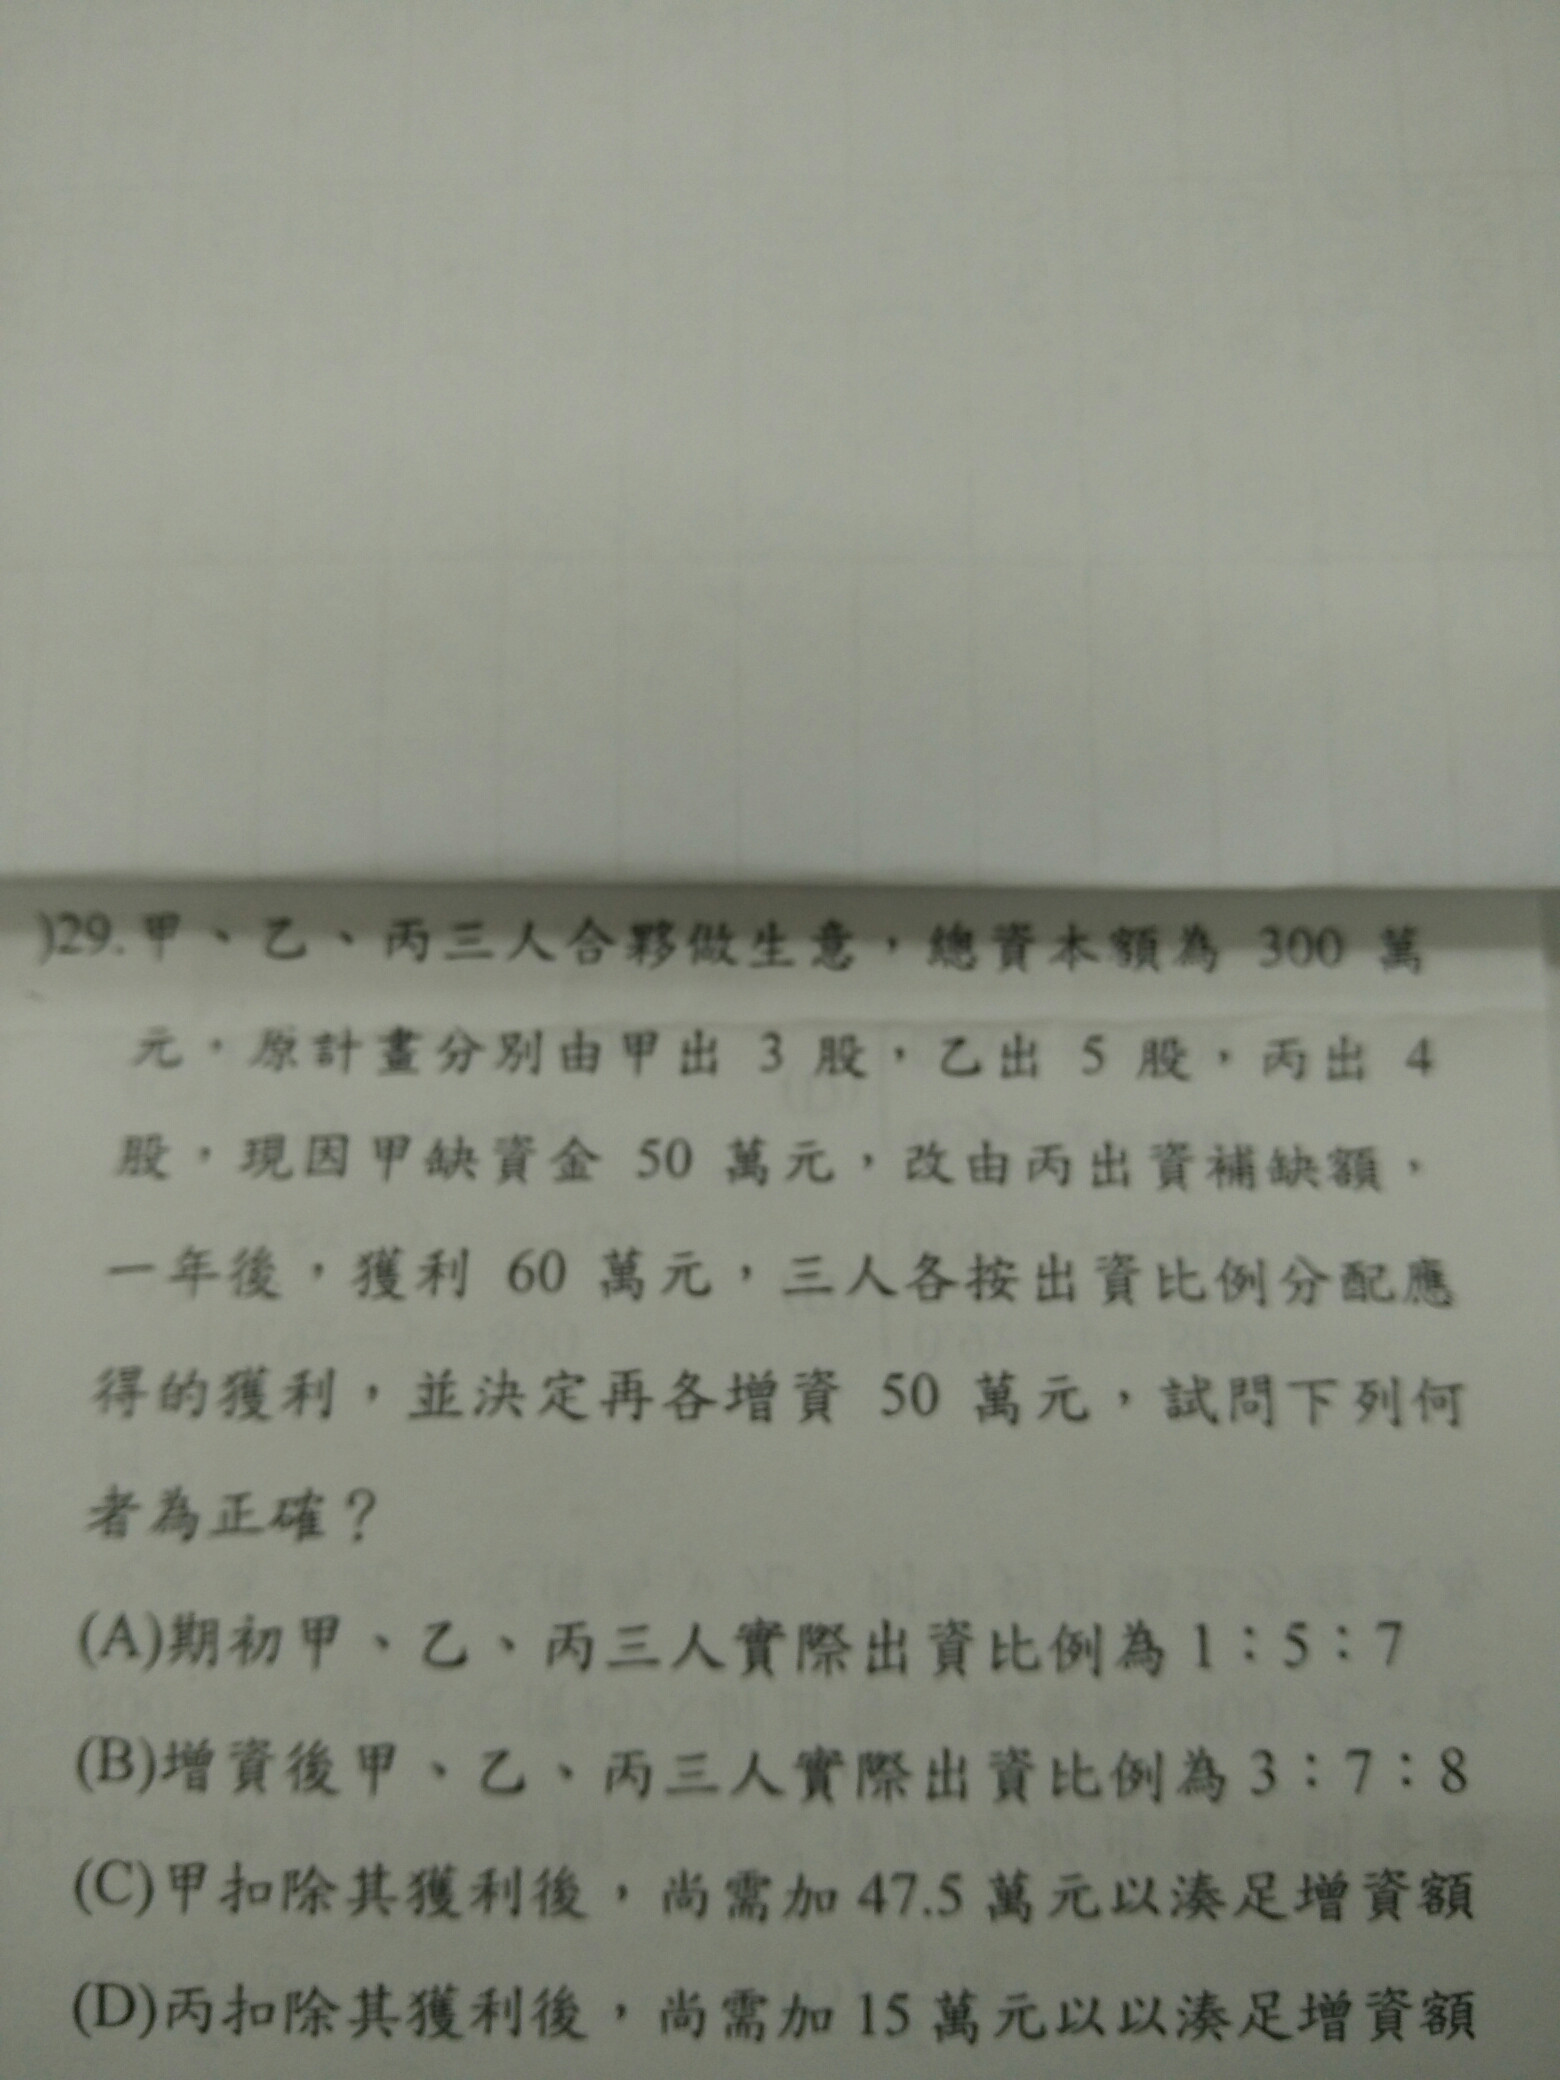 )29.甲、乙、丙三人合夥做生意，總資本額為 300 萬
元，原計畫分別由甲出 3 股，乙出 5 股，丙出 4
股，現因甲缺資金 50 萬元，改由丙出資補缺額，
一年後，獲利 60 萬元，三人各按出資比例分配應
得的獲利，並決定再各增資 50 萬元，試問下列何
者為正確？
(A)期初甲、乙、丙三人實際出資比例為1：5：7
(B)增資後甲、乙、丙三人實際出資比例為3：7：8
(C)甲扣除其獲利後，尚需加47.5萬元以湊足增資額
(D)丙扣除其獲利後，尚需加15萬元以以湊足增資額